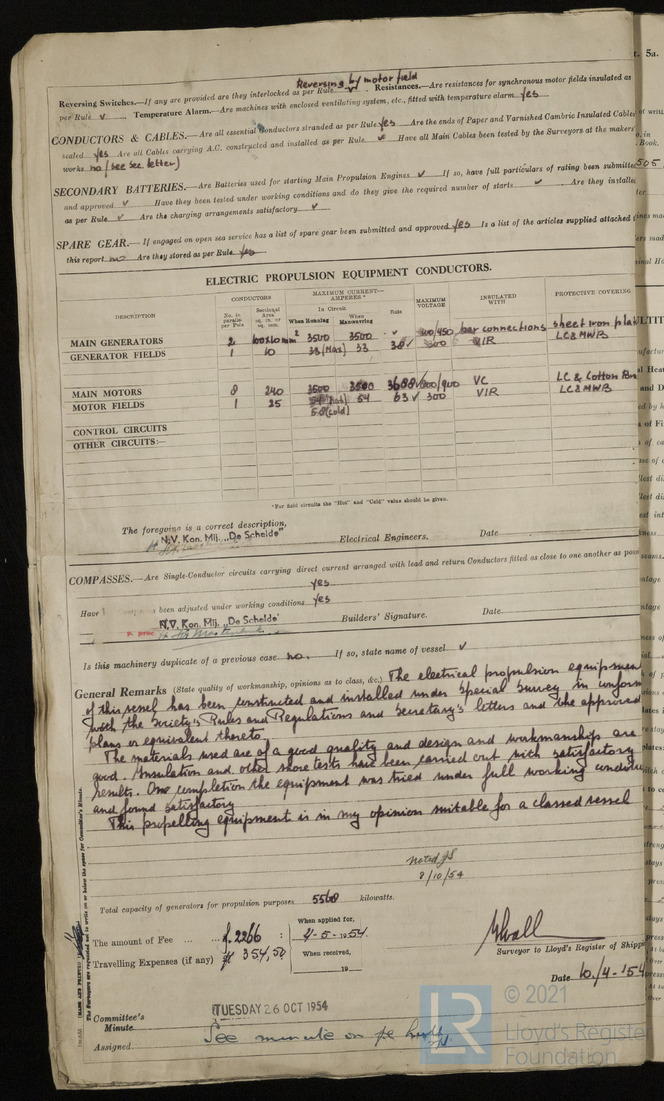 Reversing by motor field
Reversing Switches.—If any are provided are they interlocked as per Rule ✓ Resistances.—Are resistances for synchronous motor fields insulated as
per Rule ✓ Temperature Alarm.—Are machines with enclosed ventilating system, etc., fitted with temperature alarm yes
CONDUCTORS & CABLES.—Are all essential Conductors stranded as per Rule yes Are the ends of Paper and Varnished Cambric Insulated Cables
sealed yes Are all Cables carrying A.C. constructed and installed as per Rule ✓ Have all Main Cables been tested by the Surveyors at the makers'
works no (see sec letter)
SECONDARY BATTERIES.—Are Batteries used for starting Main Propulsion Engines ✓ If so, have full particulars of rating been submitted
and approved ✓ Have they been tested under working conditions and do they give the required number of starts ✓ Are they installed
as per Rule ✓ Are the charging arrangements satisfactory ✓
SPARE GEAR.—If engaged on open sea service has a list of spare gear been submitted and approved yes Is a list of the articles supplied attached
this report no Are they stored as per Rule yes
ELECTRIC PROPULSION EQUIPMENT CONDUCTORS.
DESCRIPTION CONDUCTORS MAXIMUM CURRENT—AMPERES * MAXIMUM VOLTAGE INSULATED WITH PROTECTIVE COVERING
No. in parallel per Pole Sectional Area sq. in. or sq. mm. In Circuit When Running When Manœuvring Rule
MAIN GENERATORS 2 100x10 mm² 3500 3500 ✓ 450 bar connections sheet iron
GENERATOR FIELDS 1 10 33 (Max) 33 38 ✓ 300 VIR LC&MWB
MAIN MOTORS 8 240 3500 3500 3688 ✓ /900 VC LC & Cotton
MOTOR FIELDS 1 25 54 (hot) 54 63 ✓ 300 VIR LC&MWB
58 (cold)
CONTROL CIRCUITS
OTHER CIRCUITS:—
*For field circuits the "Hot" and "Cold" value should be given.
The foregoing is a correct description,
N.V. Kon. Mij. „De Schelde" Electrical Engineers. Date
COMPASSES.—Are Single-Conductor circuits carrying direct current arranged with lead and return Conductors fitted as close to one another as
yes
Have been adjusted under working conditions yes
N.V. Kon. Mij. „De Schelde" Builders' Signature. Date
Is this machinery duplicate of a previous case no. If so, state name of vessel ✓
General Remarks (State quality of workmanship, opinions as to class, &c.) The electrical propulsion equipment
of this vessel has been constructed and installed under Special Survey in
with the Society's Rules and Regulations and Secretary's letters and the approved
plans or equivalent thereto.
The materials used are of a good quality and design and workmanship are
good. Insulation and other shore tests have been carried out with satisfactory
results. One completion the equipment was tried under full working
and found satisfactory
This propelling equipment is in my opinion suitable for a classed vessel
noted
8/10/54
Total capacity of generators for propulsion purposes 5568 kilowatts.
The amount of Fee ... ... £ 2266 : When applied for, 4-5-1954.
Travelling Expenses (if any) 354,50 When received, 19
Surveyor to Lloyd's Register of
Date
Committee's
Minute TUESDAY 26 OCT 1954
See minute on
Assigned
© 2021
LR
Lloyd's Register
Foundation